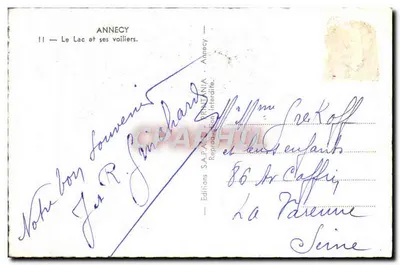 ANNECY
11 — Le Lac et ses voiliers.
Notre bon souvenir
J et R. Guichard
Editions S.A.P.A. PRINTANIA - Annecy
Reproduction interdite.
M. Mme Grekoff
et leurs enfants
86 Av Caffin
La Varenne
Seine